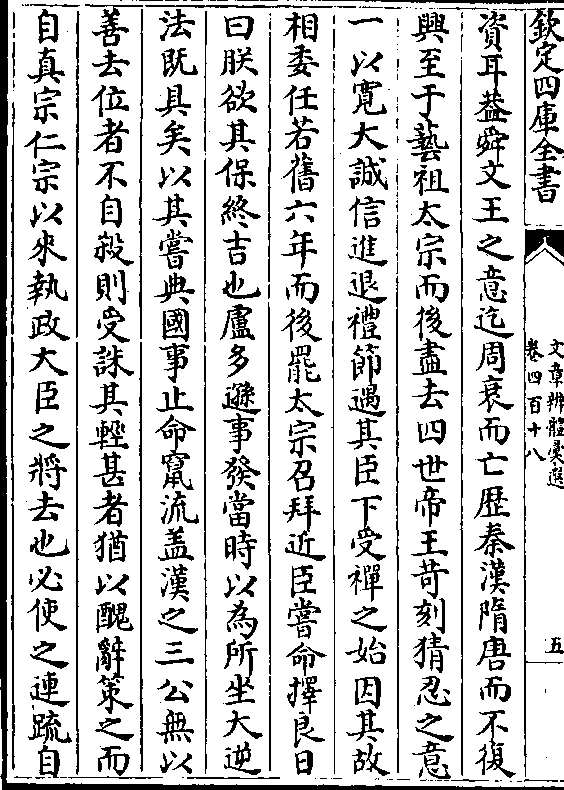 欽定四庫全書
文章辨體彚選
卷四百十八
五
資耳葢舜文王之意迄周衰而亡歴秦漢隋唐而不復
興至于藝祖太宗而後盡去四世帝王苛刻猜忍之意
一以寛大誠信進退禮節遇其臣下受禪之始因其故
相委任若舊六年而後罷太宗召拜近臣嘗命擇良日
曰朕欲其保終吉也盧多遜事發當時以為所坐大逆
法既具矣以其嘗典國事止命竄流盖漢之三公無以
善去位者不自殺則受誅其輕甚者猶以醜辭策之而
自真宗仁宗以來執政大臣之將去也必使之連䟽自